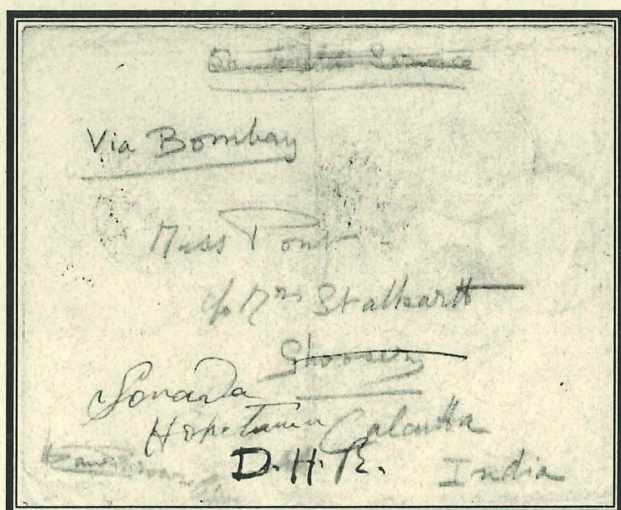 On Service
Via Bombay
Miss Pont
c/o Mrs Stalkartt
Ghoosery
Sonada
Hopetown Calcutta
D.H.R. India